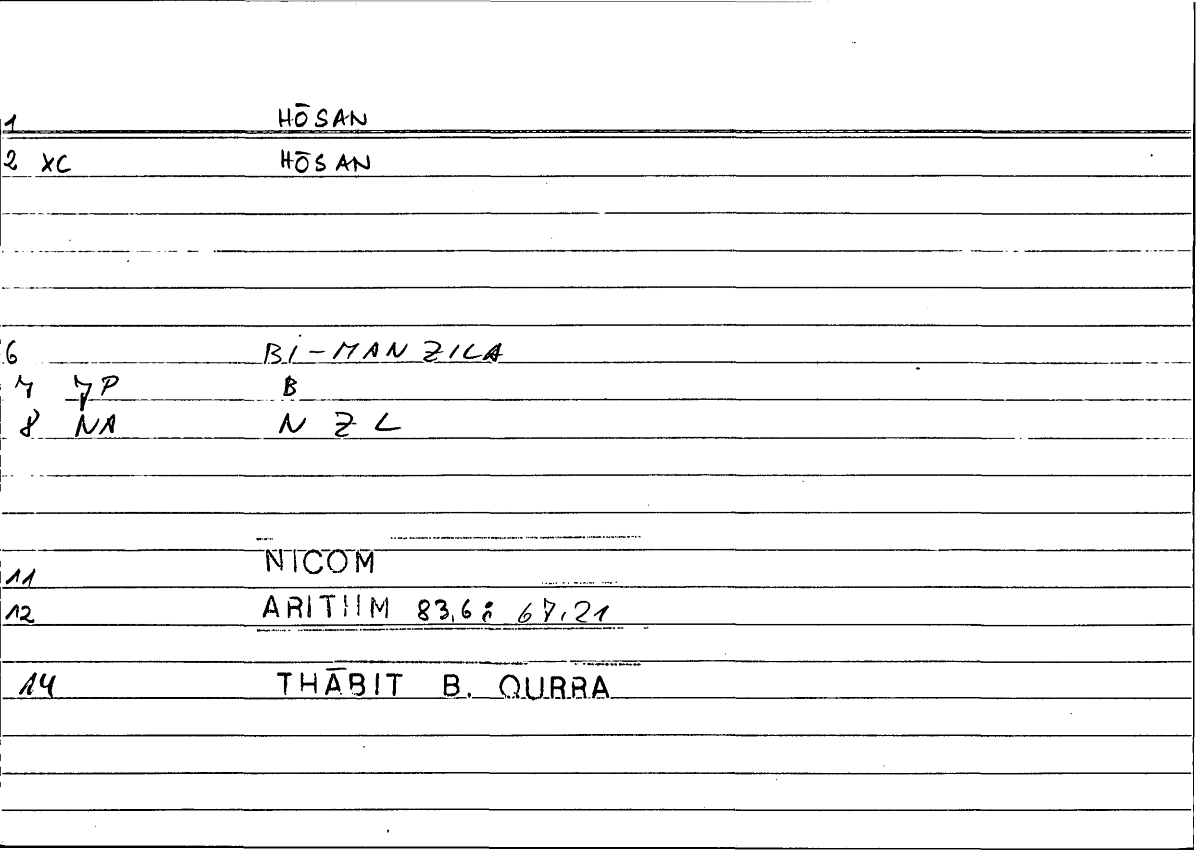 1 HŌSAN
2 XC HŌSAN
6 BI-MANZILA
7 JP B
8 NA N Z L
11 NICOM
12 ARITHM 83,6; 67,21
14 THĀBIT B. QURRA